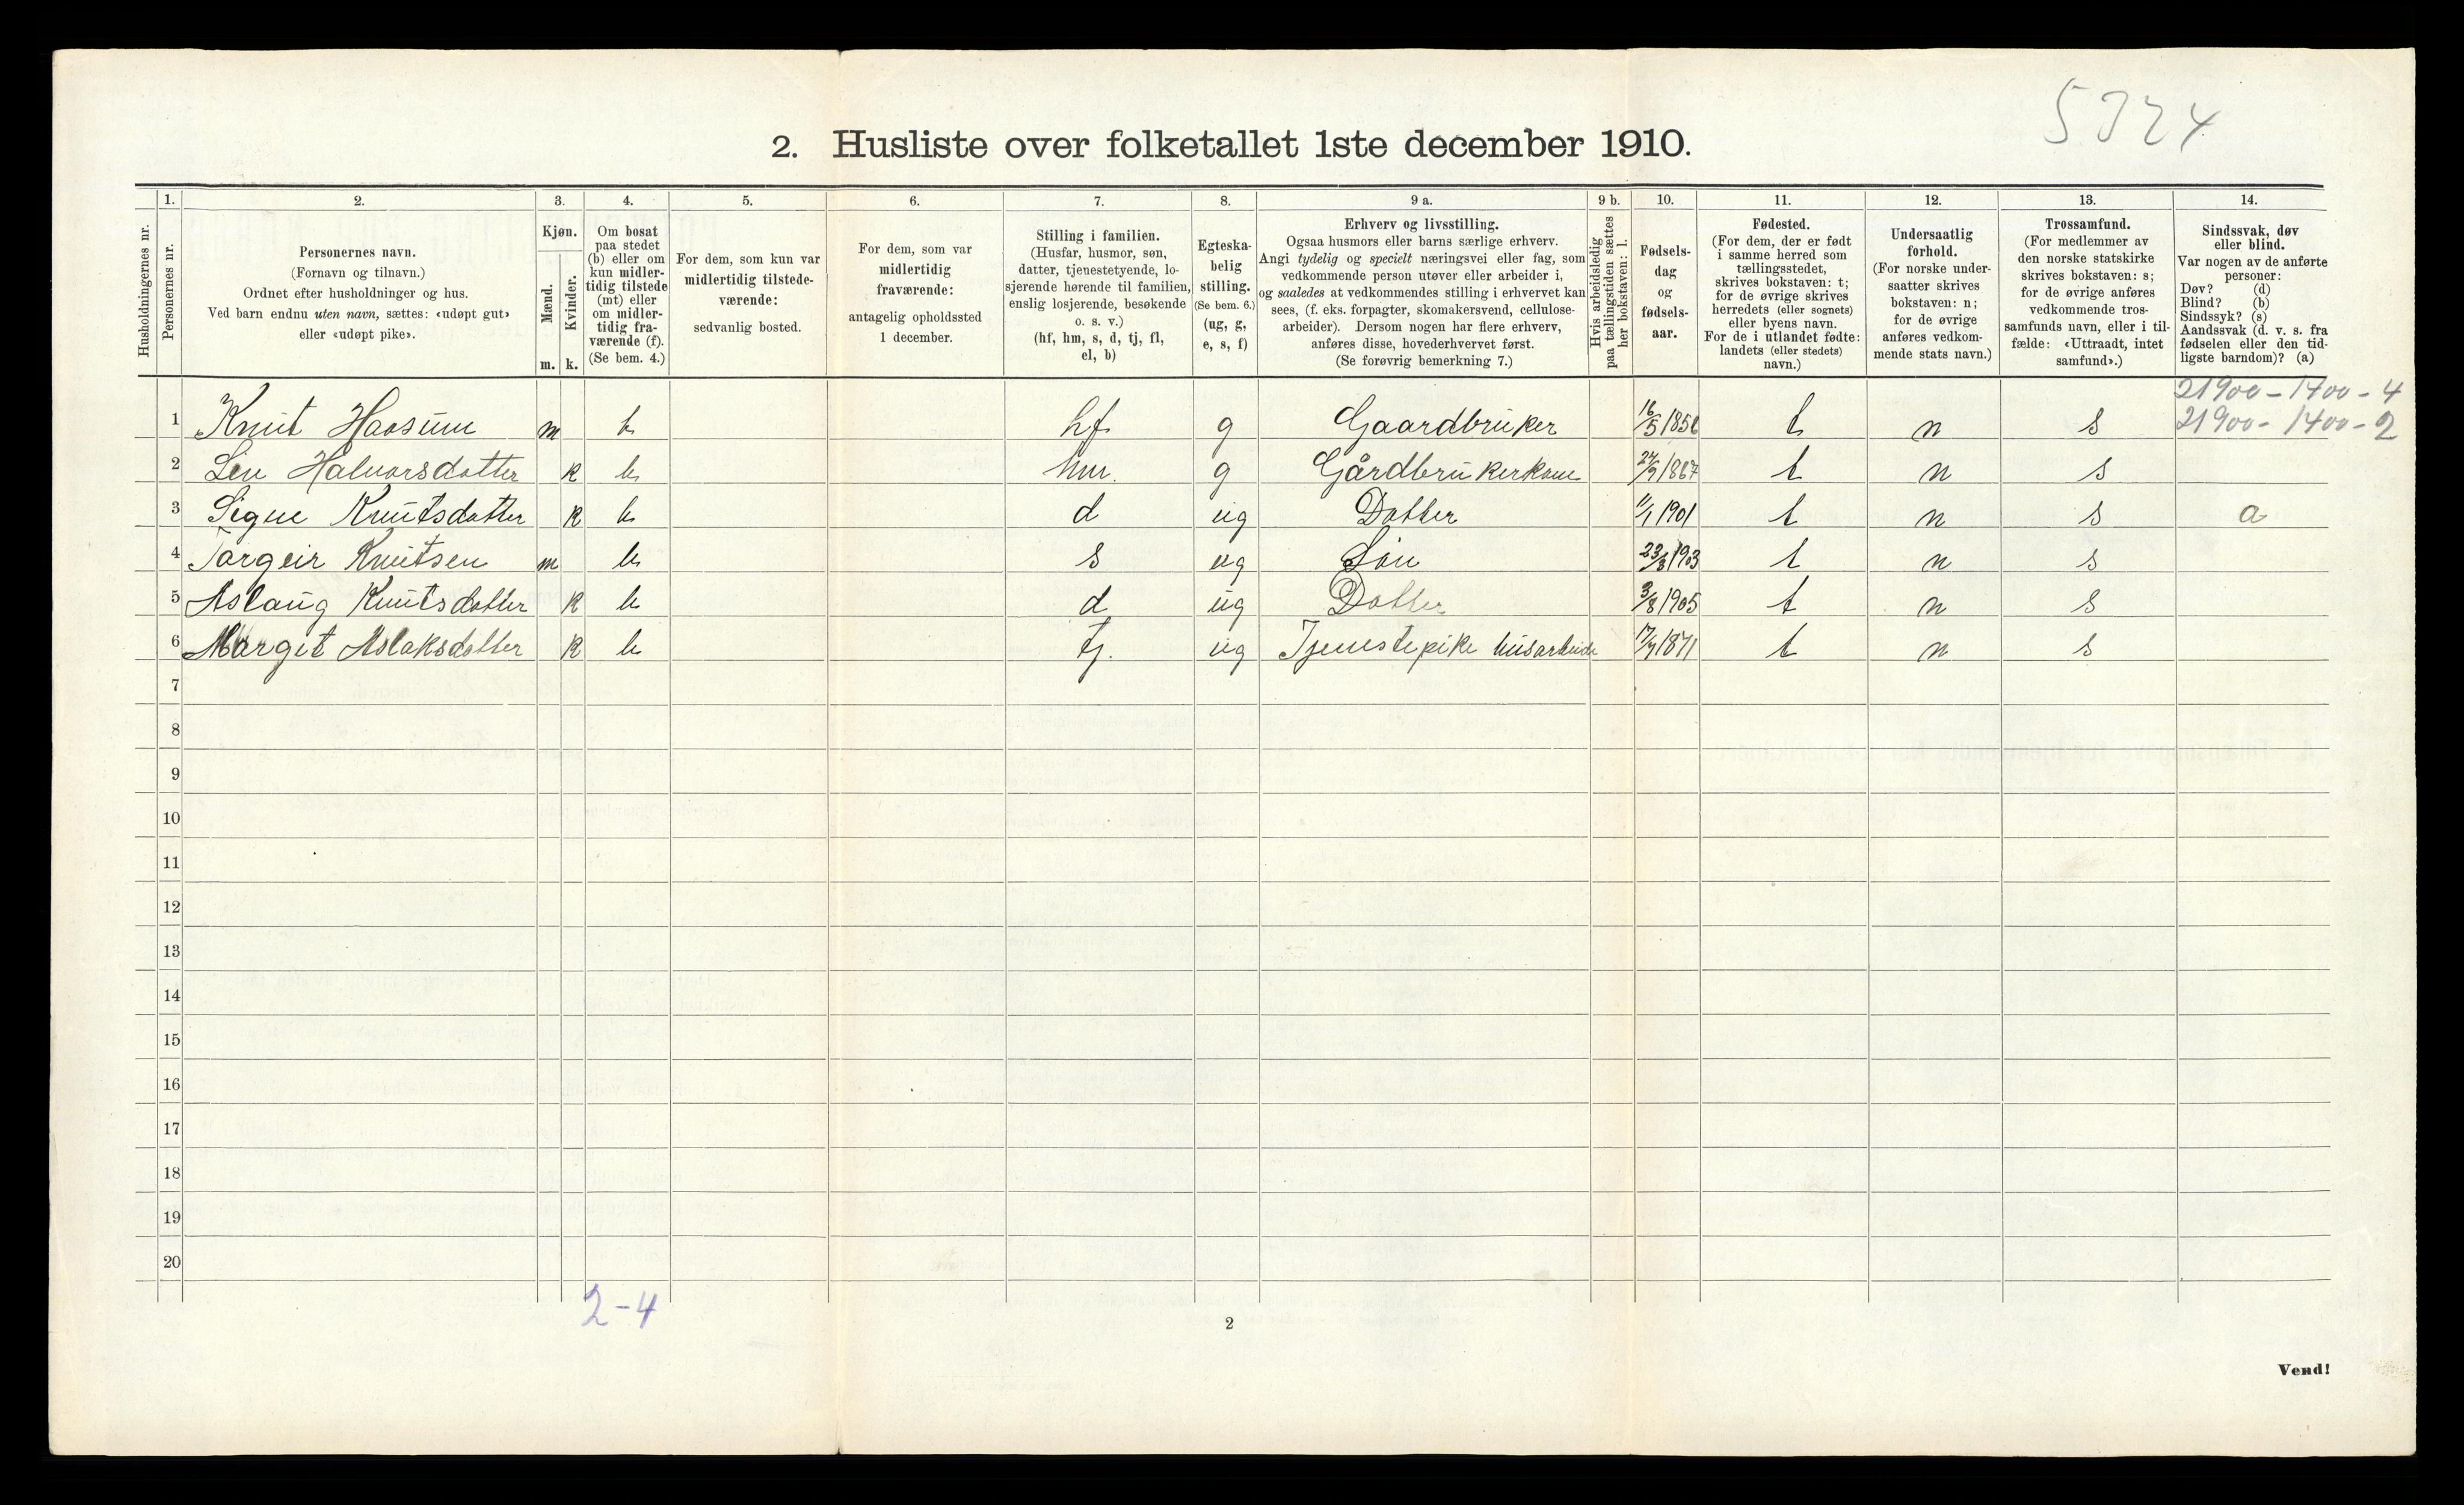 5324
2. Husliste over folketallet 1ste december 1910.
Husholdningernes nr.
1.
Personernes nr.
2.
Personernes navn.
(Fornavn og tilnavn.)
Ordnet efter husholdninger og hus.
Ved barn endnu uten navn, sættes: «udøpt gut»
eller «udøpt pike».
3.
Kjøn.
Mænd.
Kvinder.
m. k.
4.
Om bosat
paa stedet
(b) eller om
kun midler-
tidig tilstede
(mt) eller
om midler-
tidig fra-
værende (f).
(Se bem. 4.)
5.
For dem, som kun var
midlertidig tilstede-
værende:
sedvanlig bosted.
6.
For dem, som var
midlertidig
fraværende:
antagelig opholdssted
1 december.
7.
Stilling i familien.
(Husfar, husmor, søn,
datter, tjenestetyende, lo-
sjerende hørende til familien,
enslig losjerende, besøkende
o. s. v.)
(hf, hm, s, d, tj, fl,
el, b)
8.
Egteska-
belig
stilling.
(Se bem. 6.)
(ug, g,
e, s, f)
9 a.
Erhverv og livsstilling.
Ogsaa husmors eller barns særlige erhverv.
Angi tydelig og specielt næringsvei eller fag, som
vedkommende person utøver eller arbeider i,
og saaledes at vedkommendes stilling i erhvervet kan
sees, (f. eks. forpagter, skomakersvend, cellulose-
arbeider). Dersom nogen har flere erhverv,
anføres disse, hovederhvervet først.
(Se forøvrig bemerkning 7.)
9 b.
Hvis arbeidsledig
paa tællingstiden sættes
her bokstaven: l.
10.
Fødsels-
dag
og
fødsels-
aar.
11.
Fødested.
(For dem, der er født
i samme herred som
tællingsstedet,
skrives bokstaven: t;
for de øvrige skrives
herredets (eller sognets)
eller byens navn.
For de i utlandet fødte:
landets (eller stedets)
navn.)
12.
Undersaatlig
forhold.
(For norske under-
saatter skrives
bokstaven: n;
for de øvrige
anføres vedkom-
mende stats navn.)
13.
Trossamfund.
(For medlemmer av
den norske statskirke
skrives bokstaven: s;
for de øvrige anføres
vedkommende tros-
samfunds navn, eller i til-
fælde: «Uttraadt, intet
samfund».)
14.
Sindssvak, døv
eller blind.
Var nogen av de anførte
personer:
Døv? (d)
Blind? (b)
Sindssyk? (s)
Aandssvak (d. v. s. fra
fødselen eller den tid-
ligste barndom)? (a)
21900 - 1400 - 4
1 Knut Haasum m b hf g Gaardbruker 16/5 1856 t n s 21900 - 1400 - 2
2 Liv Halvorsdatter k b hm. g Gårdbrukerkone 27/9 1867 t n s
3 Signe Knutsdatter k b d ug Datter 11/1 1901 t n s a
4 Torgeir Knutsen m b s ug Søn 23/8 1903 t n s
5 Aslaug Knutsdatter k b d ug Datter 3/8 1905 t n s
6 Margit Aslaksdatter k b tj. ug Tjenestepike husarbeide 17/7 1871 t n s
7
8
9
10
11
12
13
14
15
16
17
18
19
20
2-4
2
Vend!